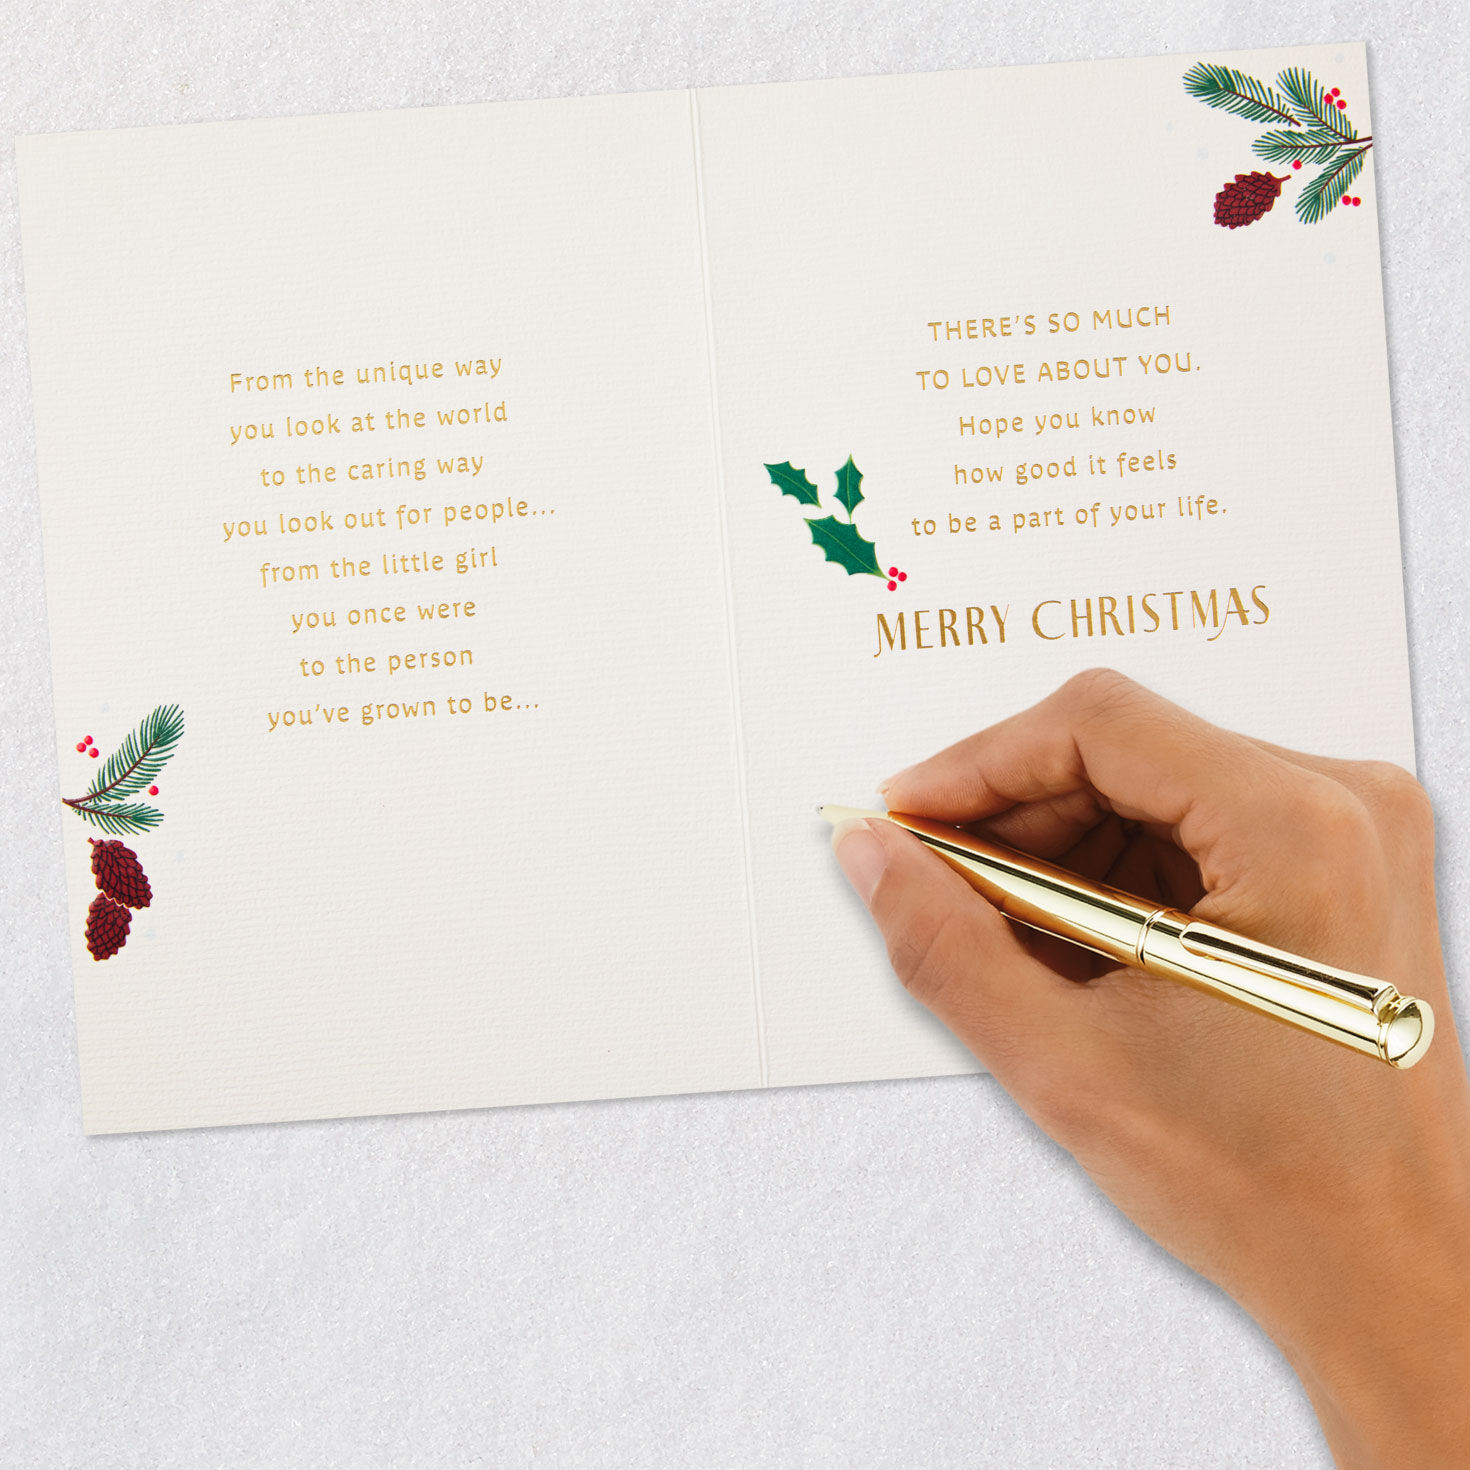 From the unique way
you look at the world
to the caring way
you look out for people...
from the little girl
you once were
to the person
you've grown to be...
THERE'S SO MUCH
TO LOVE ABOUT YOU.
Hope you know
how good it feels
to be a part of your life.
MERRY CHRISTMAS